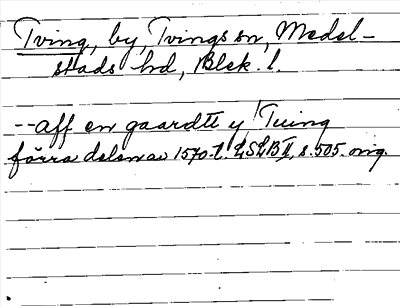 Tving, by, Tvings sn, Medel-
stads hd, Blek. l.
-- aff en gaardtt y Tuing
förra delen av 1570-t. LSLB II, s. 505. orig.